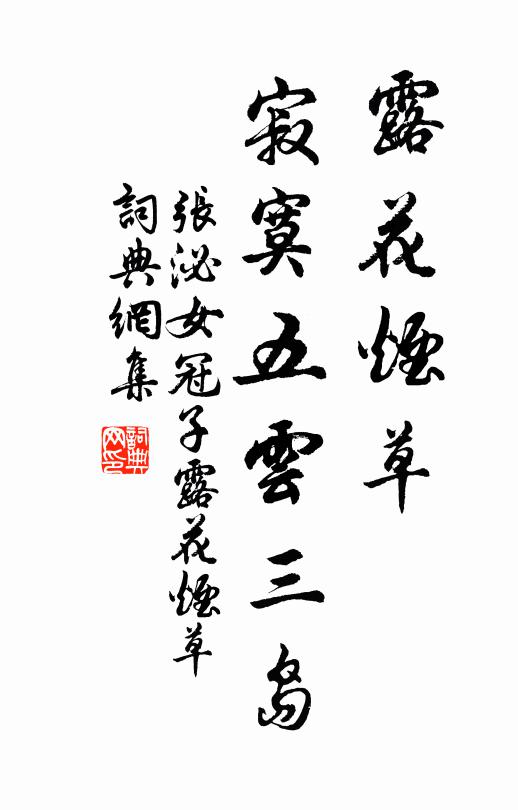 露花煙草
寂寞五雲三島
張泌女冠子露花煙草
詞典網集
詞典网印